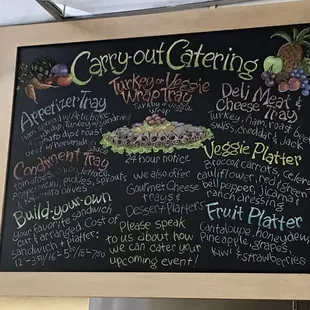 Carry-out Catering
Appetizer Tray
Turkey or Veggie
Wrap Tray
Turkey or Veggie
24 hour notice
We also offer
Gourmet Cheese
trays &
Dessert Platters
Please speak
to us about how
we can cater your
upcoming event!
Condiment Tray
pickles, sprouts
Build-your-own
Your favorite sandwich
cut & arranged. Cost of
sandwich + platter:
Deli Meat &
Cheese Tray
Turkey, ham, roast beef,
swiss, cheddar & jack
Veggie Platter
Broccoli, carrots, celery,
cauliflower, red & green
bell pepper, jicama &
ranch dressing
Fruit Platter
Cantaloupe, honeydew,
Pineapple, grapes,
Kiwi & strawberries